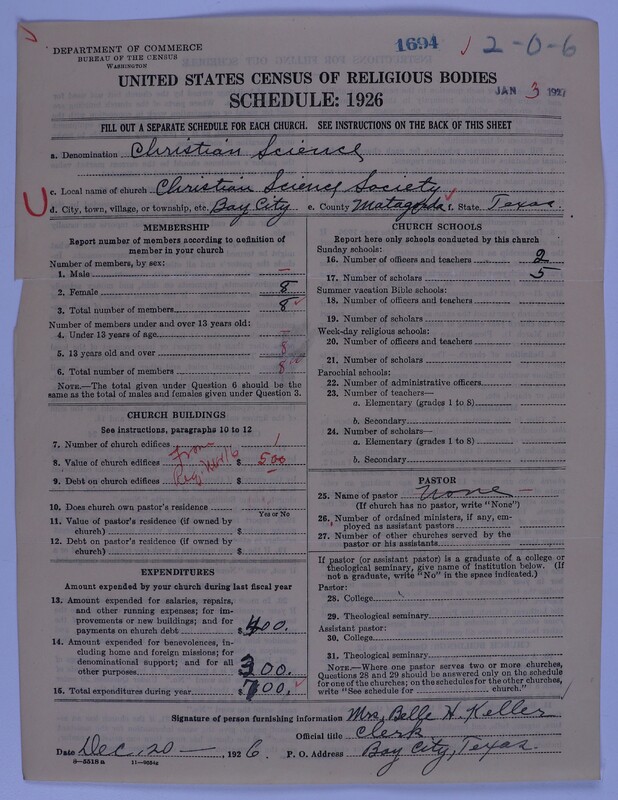 DEPARTMENT OF COMMERCE
BUREAU OF THE CENSUS
WASHINGTON
1694
2-0-6
UNITED STATES CENSUS OF RELIGIOUS BODIES
SCHEDULE: 1926
JAN 3 1927
FILL OUT A SEPARATE SCHEDULE FOR EACH CHURCH. SEE INSTRUCTIONS ON THE BACK OF THIS SHEET
a. Denomination Christian Science
c. Local name of church Christian Science Society
d. City, town, village, or township, etc. Bay City e. County Matagorda f. State Texas.
MEMBERSHIP
Report number of members according to definition of
member in your church
Number of members, by sex:
1. Male —
2. Female 8
3. Total number of members 8
Number of members under and over 13 years old:
4. Under 13 years of age —
5. 13 years old and over 8
6. Total number of members 8
NOTE.—The total given under Question 6 should be the
same as the total of males and females given under Question 3.
CHURCH BUILDINGS
See instructions, paragraphs 10 to 12
7. Number of church edifices 1
8. Value of church edifices from $ 500
9. Debt on church edifices $ —
10. Does church own pastor's residence
Yes or No
11. Value of pastor's residence (if owned by
church) $
12. Debt on pastor's residence (if owned by
church) $
EXPENDITURES
Amount expended by your church during last fiscal year
13. Amount expended for salaries, repairs,
and other running expenses; for im-
provements or new buildings; and for
payments on church debt $ 400.
14. Amount expended for benevolences, in-
cluding home and foreign missions; for
denominational support; and for all
other purposes $ 300.
15. Total expenditures during year $ 700.
CHURCH SCHOOLS
Report here only schools conducted by this church
Sunday schools:
16. Number of officers and teachers 2
17. Number of scholars 5
Summer vacation Bible schools:
18. Number of officers and teachers
19. Number of scholars
Week-day religious schools:
20. Number of officers and teachers
21. Number of scholars
Parochial schools:
22. Number of administrative officers
23. Number of teachers—
a. Elementary (grades 1 to 8)
b. Secondary
24. Number of scholars—
a. Elementary (grades 1 to 8)
b. Secondary
PASTOR
25. Name of pastor None
(If church has no pastor, write "None")
26. Number of ordained ministers, if any, em-
ployed as assistant pastors
27. Number of other churches served by the
pastor or his assistants
If pastor (or assistant pastor) is a graduate of a college or
theological seminary, give name of institution below. (If
not a graduate, write "No" in the space indicated.)
Pastor:
28. College
29. Theological seminary
Assistant pastor:
30. College
31. Theological seminary
NOTE.—Where one pastor serves two or more churches,
Questions 28 and 29 should be answered only on the schedule
for one of the churches; on the schedules for the other churches,
write "See schedule for church."
Signature of person furnishing information Mrs. Belle H. Keller
Official title Clerk
Date Dec. 20 —, 1926. P. O. Address Bay City, Texas.
8—5518a 11—9624